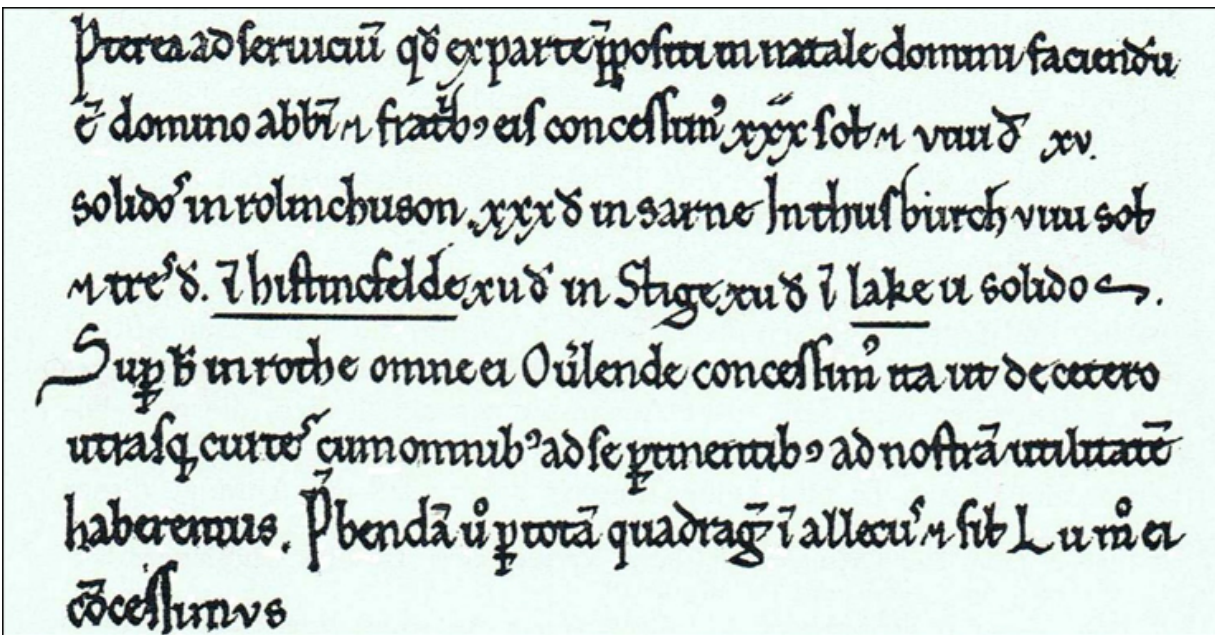 P̄terea ad seruiciū qđ ex parte p̄positi in natale domini faciendū
ē domino abbī ⁊ fratrib᷒ eis concessim᷒ xxx sol ⁊ viiii đ xv.
solidos in rolinchuson .xxx đ in sarne In thusburch viiii sol
⁊ tres đ. ī histincfelde xii đ in Stige xii đ ī lake ii solidos.
Suꝑ in rothe omne ei Oūlende concessim᷒ ita ut de cetero
utrasq curtes cum omnib᷒ ad se ꝑtinentib᷒ ad nostrā utilitatē
haberemus. P̄bendā ꝟo ꝑ totā quadrag̅ ī allecus ⁊ ei
cōcessimus